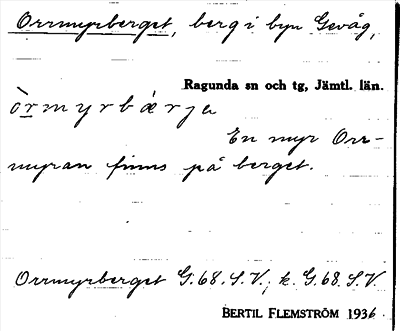 Orrmyrberget, berg i byn Gevåg,
Ragunda sn och tg, Jämtl. län.
òrmyrbærja
En myr Orr-
myran finns på berget.
Orrmyrberget G.68.S.V.; k. G.68.S.V.
BERTIL FLEMSTRÖM 1936.